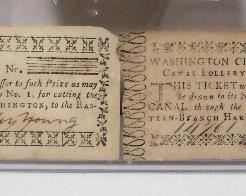 No.
ssessor to such Prize as may
No. 1, for cutting the
SHINGTON, to the EAS-
Young
WASHINGTON CI
CANAL LOTTERY
THIS TICKET
be drawn to its N
CANAL through the
TERN-BRANCH HAR